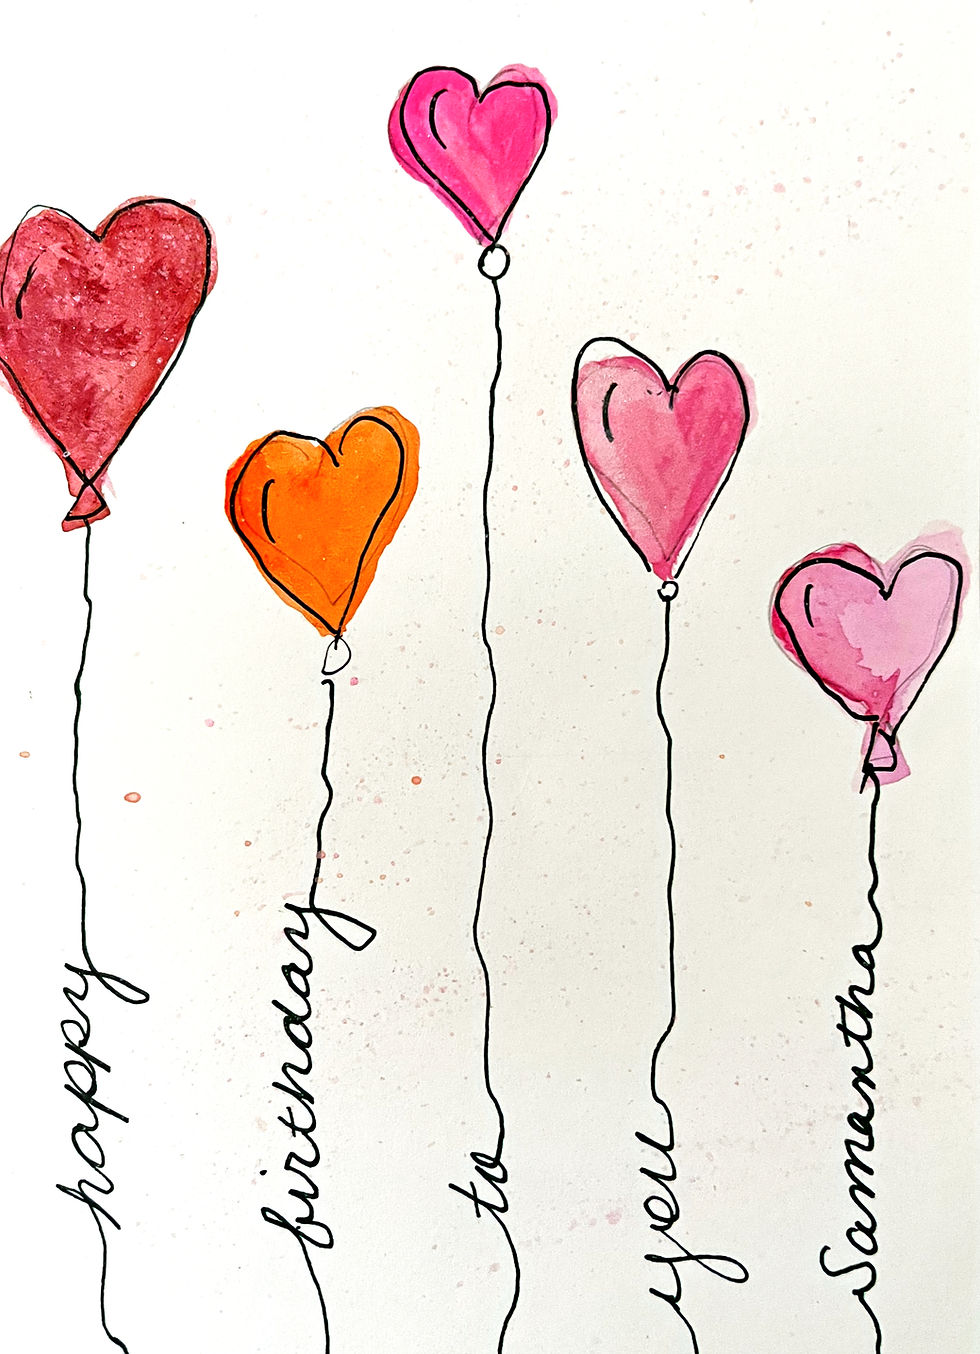 happy
birthday
to
you
Samantha